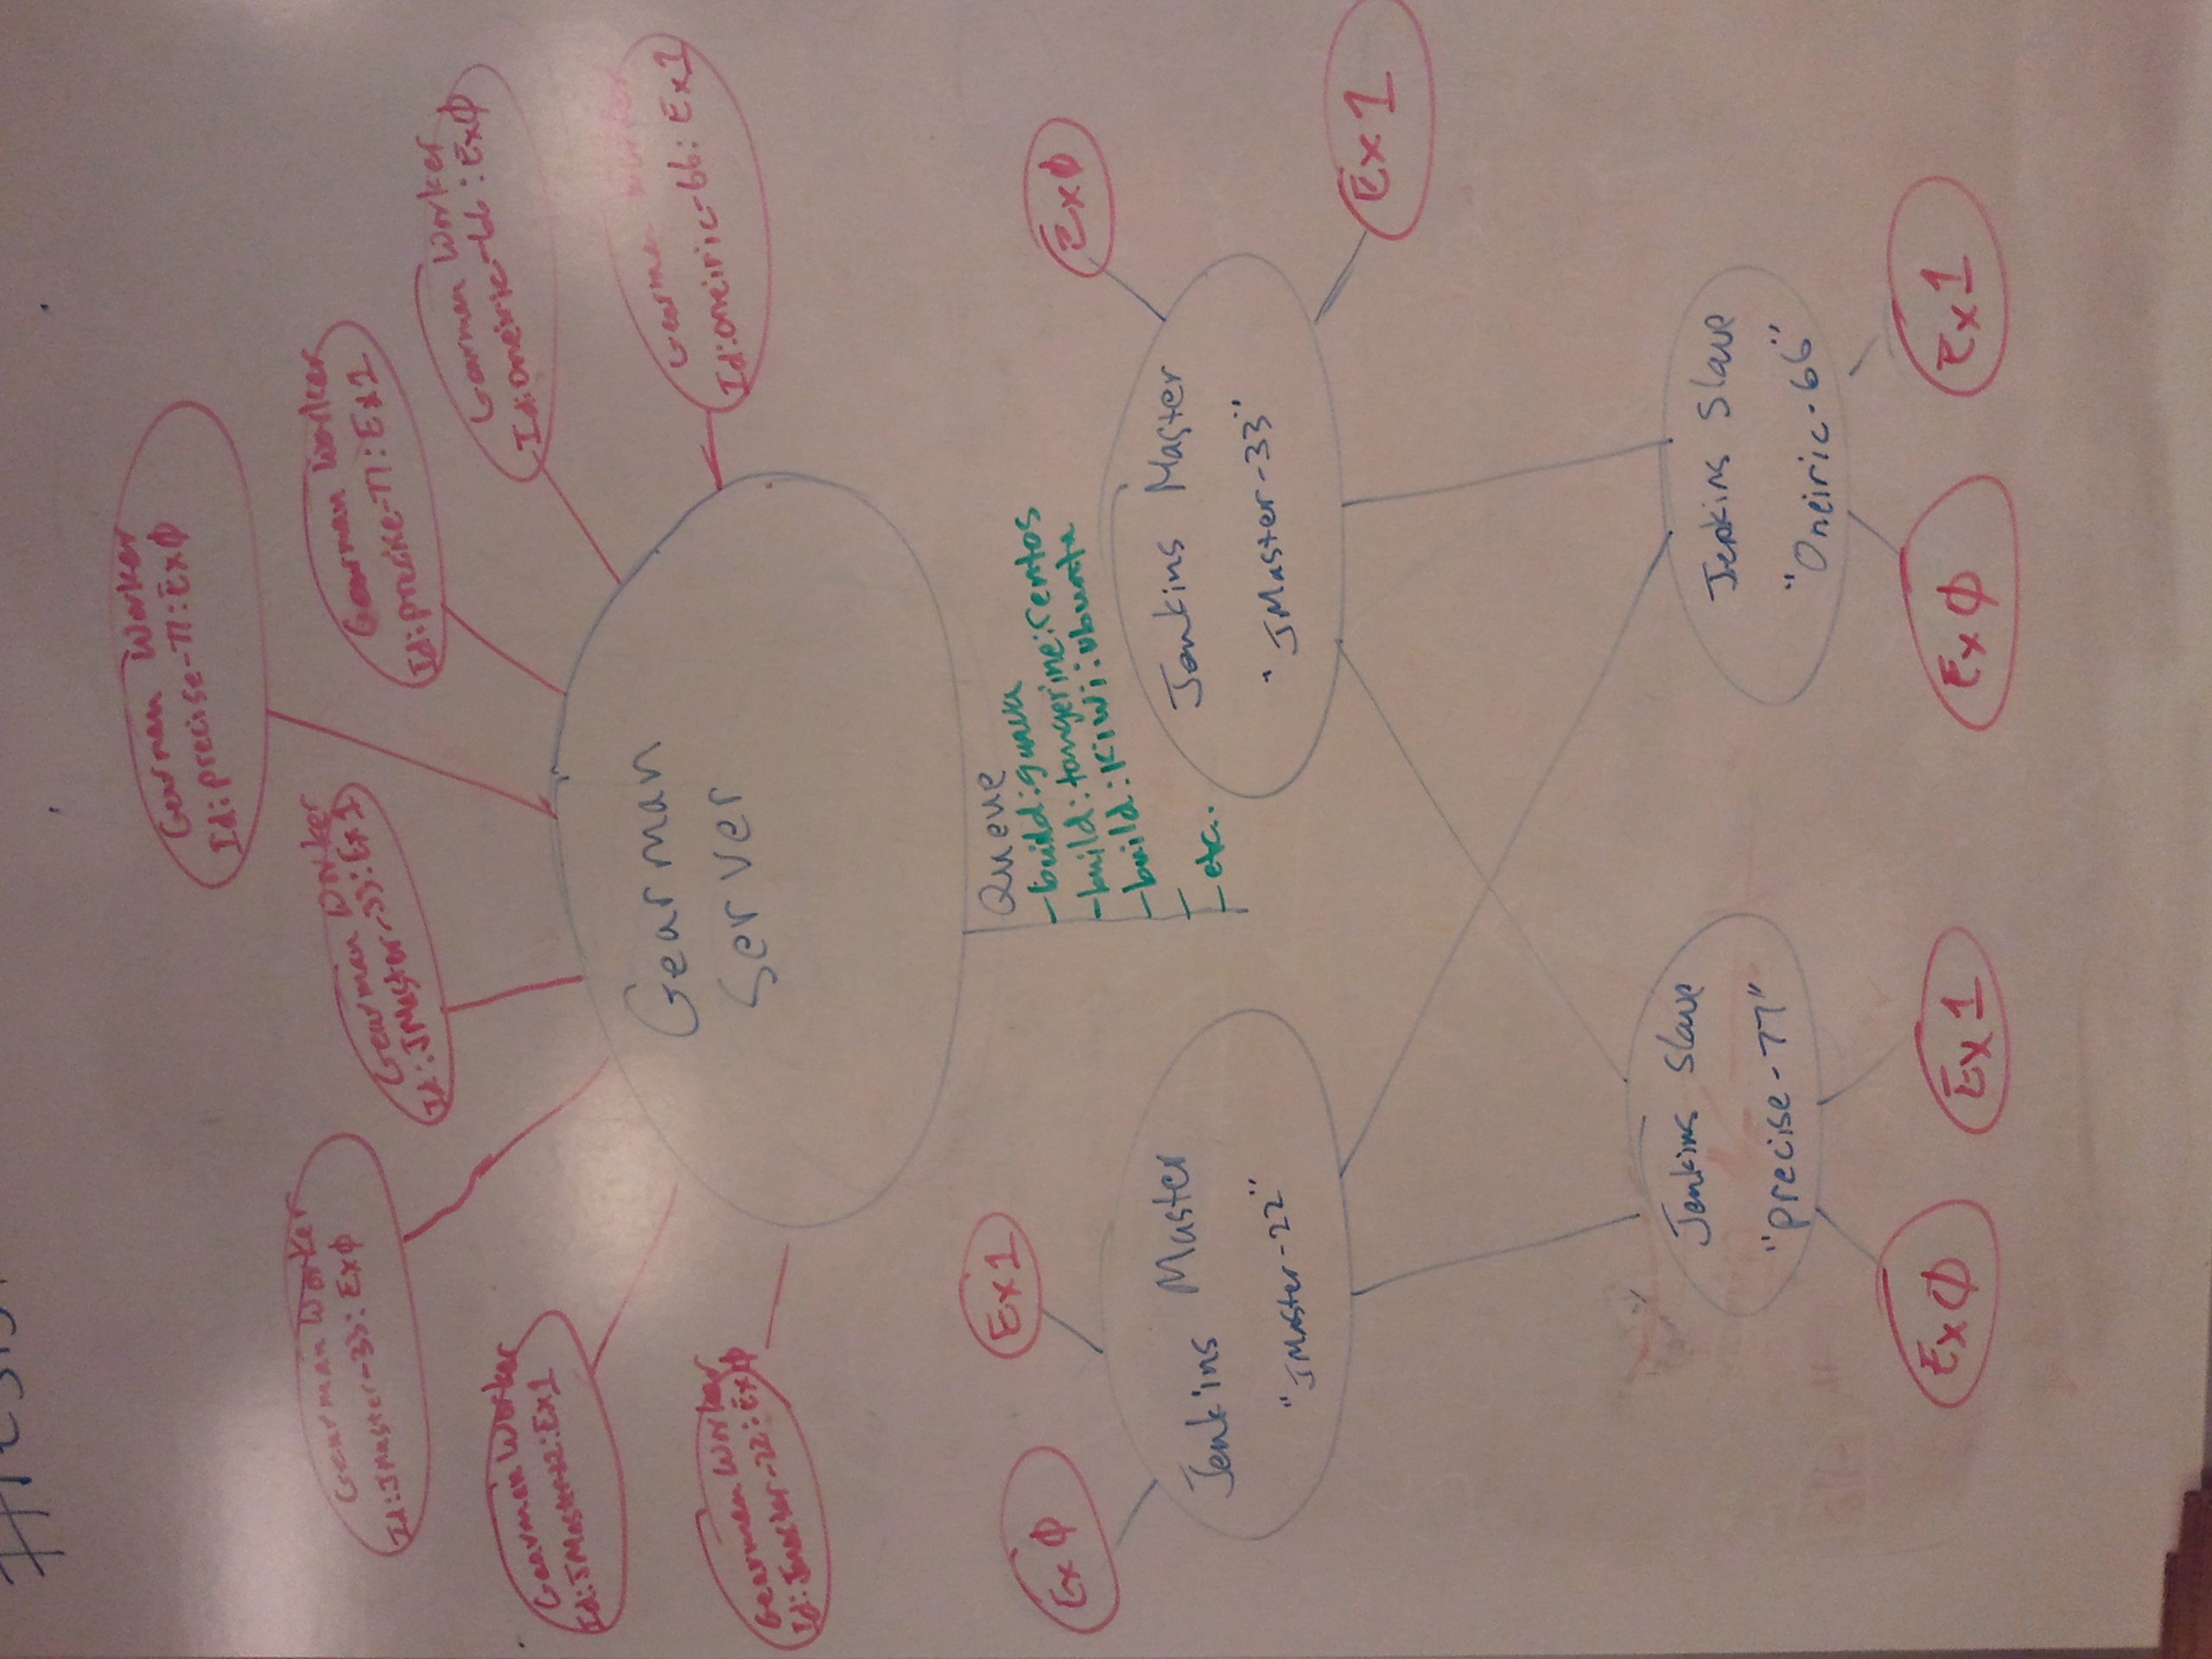 Gearman Worker
Id:precise-77:Ex0
Gearman Worker
Id:JMaster-33:Ex0
Gearman Worker
Id:JMaster-33:Ex1
Gearman Worker
Id:precise-77:Ex1
Gearman Worker
Id:oneiric-66:Ex0
Gearman Worker
Id:JMaster-22:Ex1
Gearman Worker
Id:oneiric-66:Ex1
Gearman Worker
Id:Jmaster-22:Ex0
Gearman
Server
Queue
-build:guava
-build:tangerine:centos
-build:kiwi:ubuntu
-
-etc..
Ex0
Ex1
Jenkins Master
"JMaster-22"
Ex0
Jenkins Master
"JMaster-33"
Ex1
Jenkins Slave
"precise-77"
Ex0
Ex1
Jenkins Slave
"Oneiric-66"
Ex0
Ex1